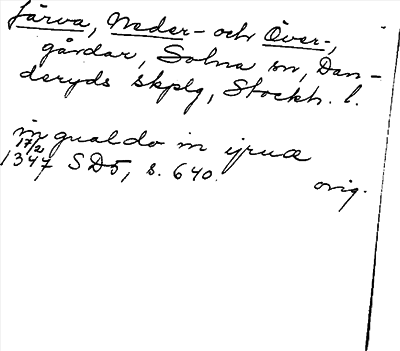 Järva, Neder- och Över-,
gårdar, Solna sn, Dan-
deryds skplg, Stockh. l.
in gualdo in ijrua
17/2
1347 SD5, s. 640.
orig.